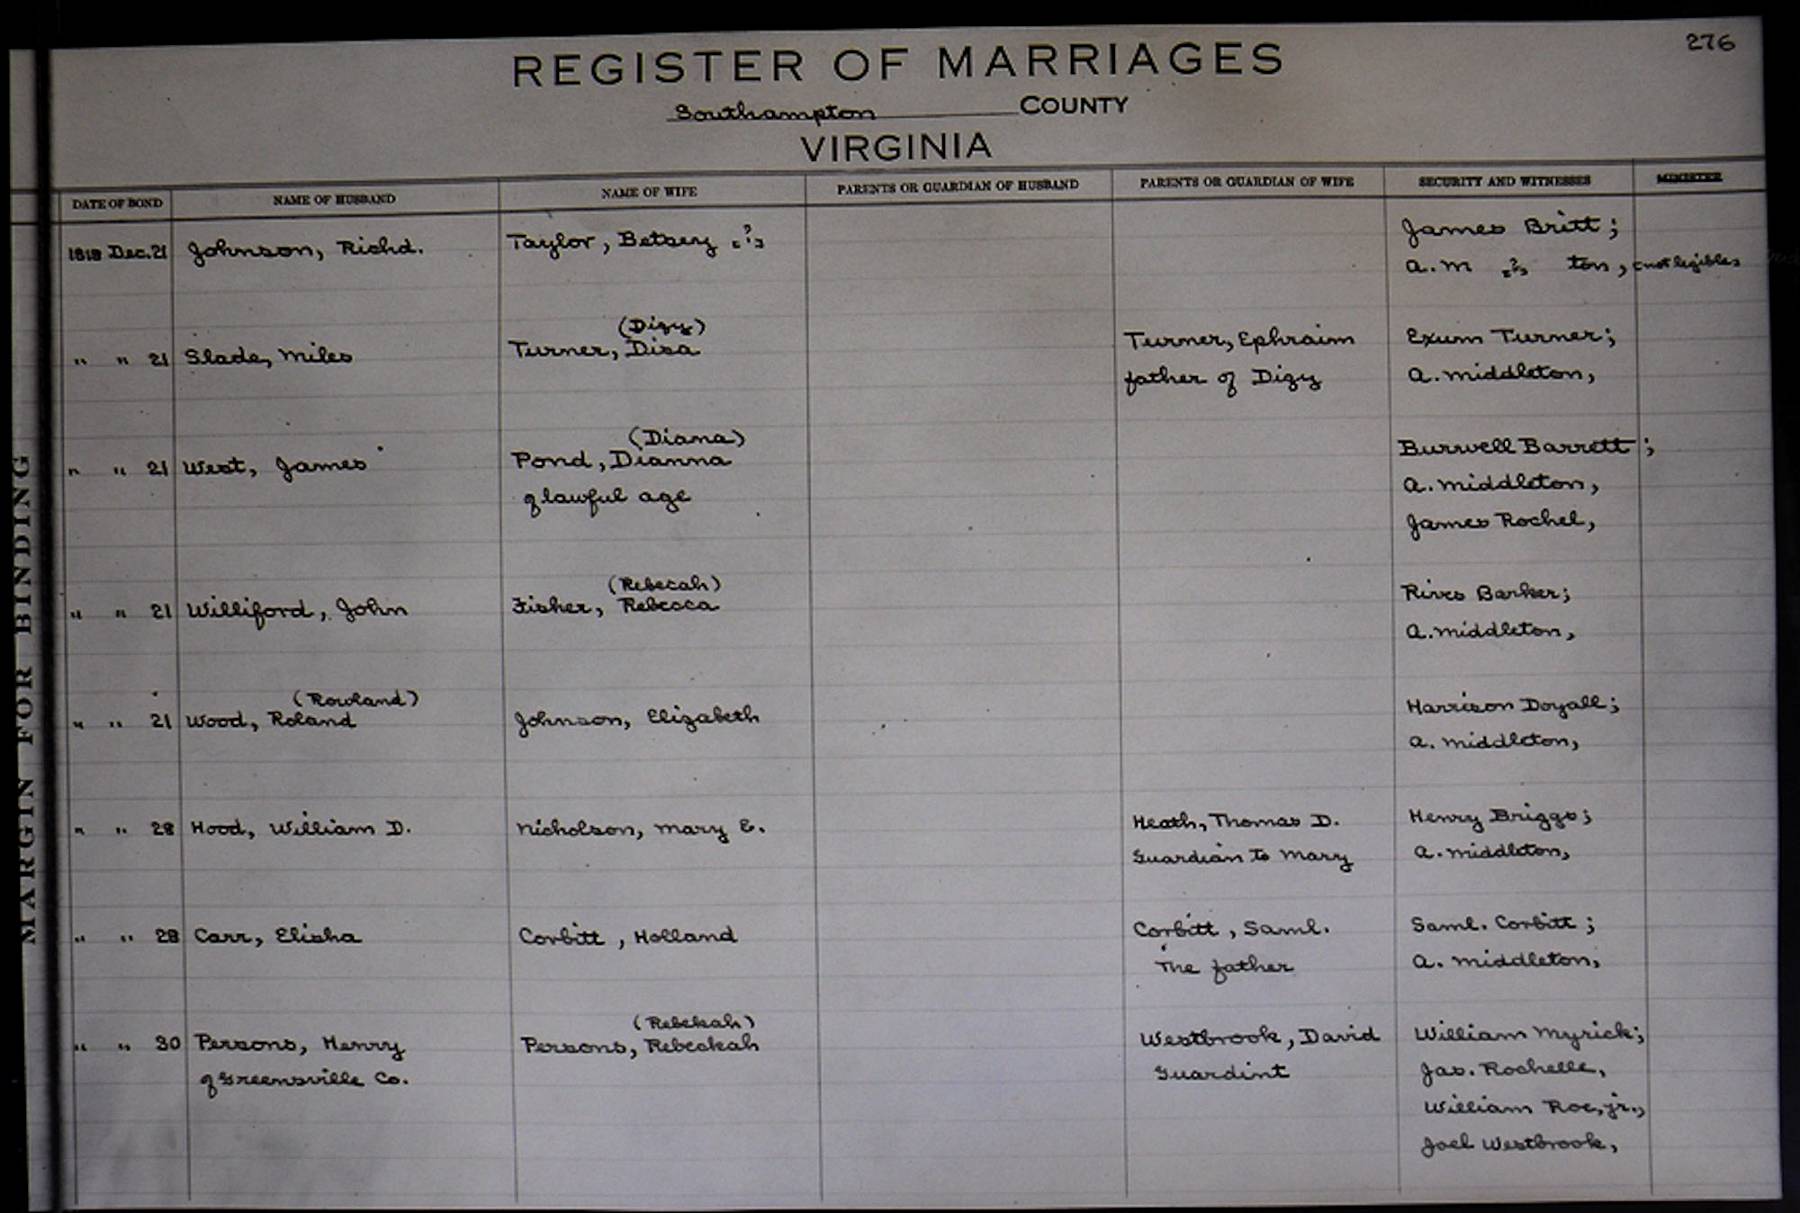 276
REGISTER OF MARRIAGES
Southampton COUNTY
VIRGINIA
DATE OF BOND NAME OF HUSBAND NAME OF WIFE PARENTS OR GUARDIAN OF HUSBAND PARENTS OR GUARDIAN OF WIFE SECURITY AND WITNESSES MINISTER
1818 Dec. 21 Johnson, Richd. Taylor, Betsey [?] James Britt;
A. M [?] ton, [not legible]
(Dizy)
" " 21 Slade, Miles Turner, Disa Turner, Ephraim Exum Turner;
father of Dizy A. Middleton,
(Diana) Burwell Barrett;
" " 21 West, James Pond, Dianna A. Middleton,
of lawful age James Rochel,
(Rebecah) Rives Barker;
" " 21 Williford, John Fisher, Rebecca A. Middleton,
(Rowland) Harrison Doyall;
" " 21 Wood, Roland Johnson, Elizabeth A. Middleton,
" " 28 Hood, William D. Nicholson, Mary E. Heath, Thomas D. Henry Briggs;
Guardian to Mary A. Middleton,
" " 28 Carr, Elisha Corbitt, Holland Corbitt, Saml. Saml. Corbitt;
The father A. Middleton,
(Rebekah)
" " 30 Persons, Henry Persons, Rebeckah Westbrook, David William Myrick;
of Greensville Co. Guardint Jas. Rochelle,
William Roe, jr.,
Joel Westbrook,
MARGIN FOR BINDING